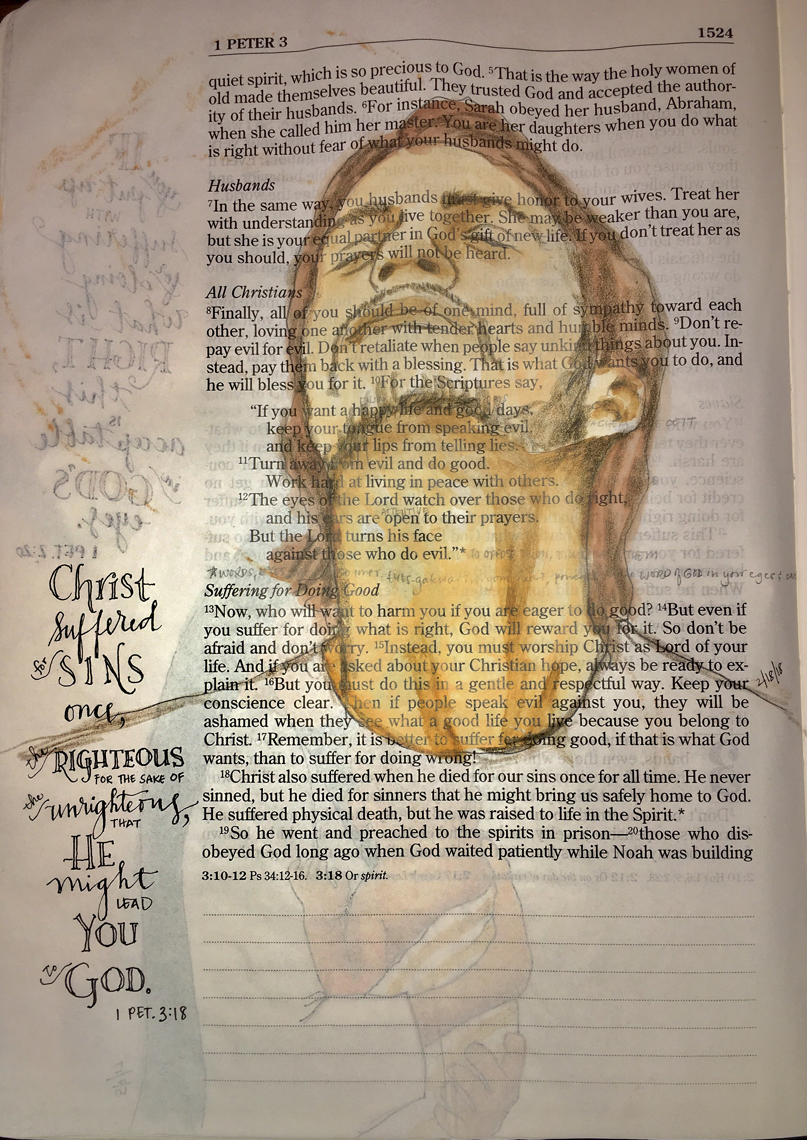 1 PETER 3
1524
quiet spirit, which is so precious to God. ⁵That is the way the holy women of
old made themselves beautiful. They trusted God and accepted the author-
ity of their husbands. ⁶For instance, Sarah obeyed her husband, Abraham,
when she called him her master. You are her daughters when you do what
is right without fear of what your husbands might do.
Husbands
⁷In the same way, you husbands must give honor to your wives. Treat her
with understanding as you live together. She may be weaker than you are,
but she is your equal partner in God's gift of new life. If you don't treat her as
you should, your prayers will not be heard.
All Christians
⁸Finally, all of you should be of one mind, full of sympathy toward each
other, loving one another with tender hearts and humble minds. ⁹Don't re-
pay evil for evil. Don't retaliate when people say unkind things about you. In-
stead, pay them back with a blessing. That is what God wants you to do, and
he will bless you for it. ¹⁰For the Scriptures say,
"If you want a happy life and good days,
keep your tongue from speaking evil,
and keep your lips from telling lies.
¹¹Turn away from evil and do good.
Work hard at living in peace with others.
¹²The eyes of the Lord watch over those who do right,
and his ears are open to their prayers.
ATTENTIVE
But the Lord turns his face
against those who do evil."*
Suffering for Doing Good
¹³Now, who will want to harm you if you are eager to do good? ¹⁴But even if
you suffer for doing what is right, God will reward you for it. So don't be
afraid and don't worry. ¹⁵Instead, you must worship Christ as Lord of your
life. And if you are asked about your Christian hope, always be ready to ex-
plain it. ¹⁶But you must do this in a gentle and respectful way. Keep your
conscience clear. Then if people speak evil against you, they will be
ashamed when they see what a good life you live because you belong to
Christ. ¹⁷Remember, it is better to suffer for doing good, if that is what God
wants, than to suffer for doing wrong!
¹⁸Christ also suffered when he died for our sins once for all time. He never
sinned, but he died for sinners that he might bring us safely home to God.
He suffered physical death, but he was raised to life in the Spirit.*
¹⁹So he went and preached to the spirits in prison—²⁰those who dis-
obeyed God long ago when God waited patiently while Noah was building
3:10-12 Ps 34:12-16. 3:18 Or spirit.
2/18/18
Christ
suffered
for SINS
once,
the RIGHTEOUS
FOR THE SAKE OF
the unrighteous,
THAT
HE
might
LEAD
YOU
to GOD.
1 PET. 3:18